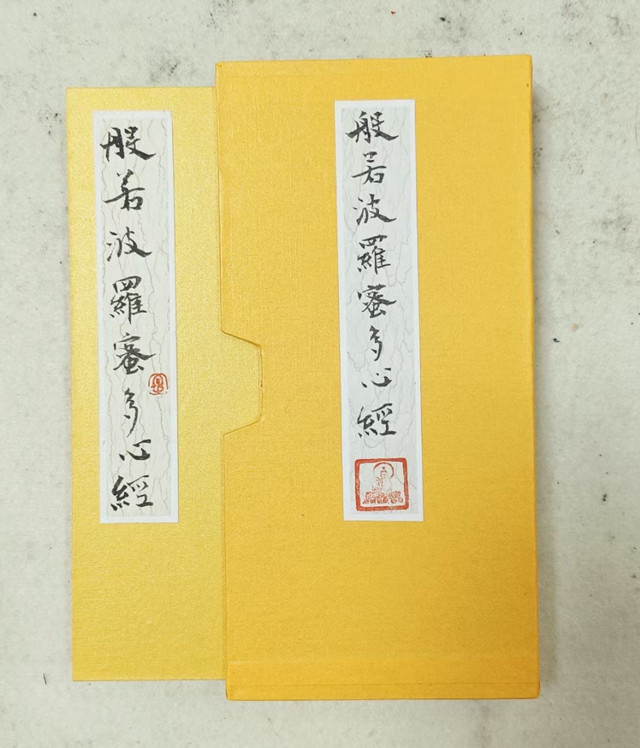 般若波羅蜜多心經
般若波羅蜜多心經